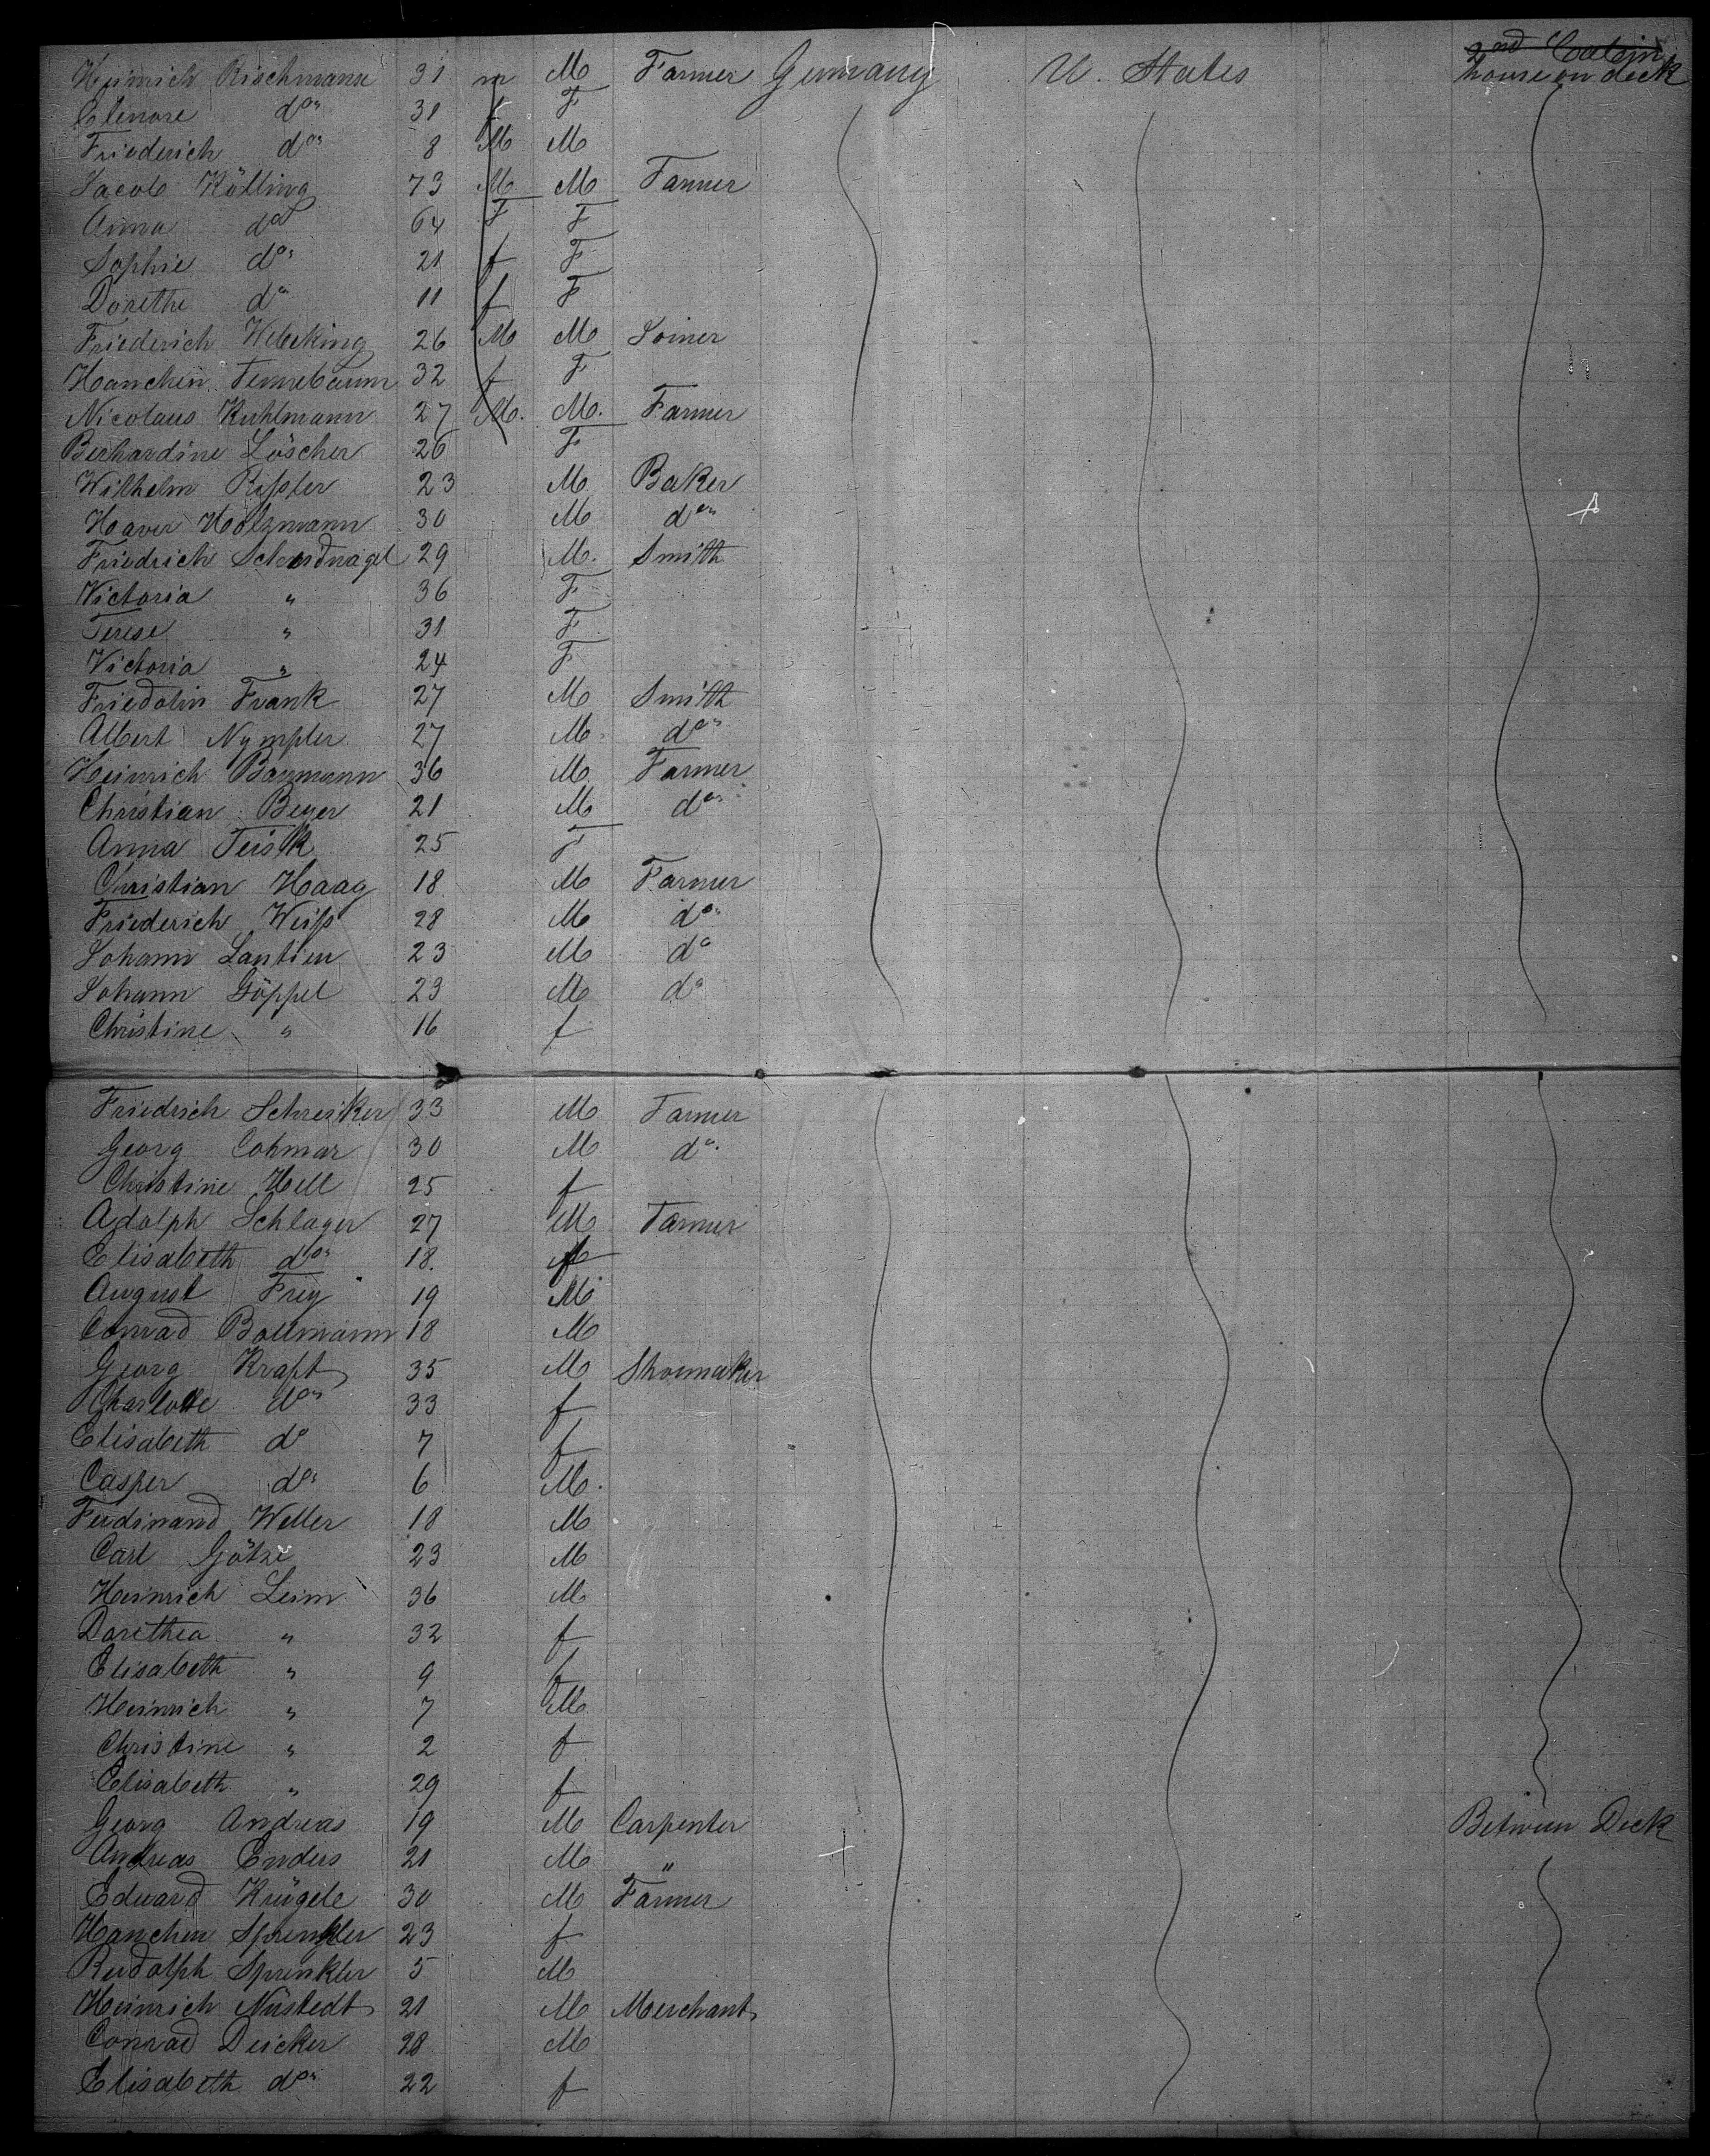 2nd Cabin
Heinrich Rischmann 31 m M Farmer Germany U. States house on deck
Elenore do 31 f F
Friederich do 8 M M
Jacob Kölling 73 M M Farmer
Anna do 64 F F
Sophie do 21 f F
Dorethe do 11 f F
Friederich Webeking 26 M M Joiner
Hanchen Tennebaum 32 f F
Nicolaus Kuhlmann 27 M. M. Farmer
Berhardine Löscher 26 F
Wilhelm 23 M Baker
Xaver Holzmann 30 M do
Friedrich 29 M. Smith
Victoria " 36 F
Terese " 31 F
Victoria " 24 F
Friedolin Frank 27 M Smith
Albert Nympler 27 M do
Heinrich Bazmann 36 M Farmer
Christian Beyer 21 M do
Anna Teisk 25 F
Christian Haag 18 M Farmer
Friederich Weiss 28 M do
Johann Lantien 23 M do
Johann Göppel 23 M do
Christine " 16 f
Friedrich Schreiker 33 M Farmer
Georg Cohmar 30 M do
Christine Hell 25 f
Adolph Schlager 27 M Farmer
Elisabeth do 18. f
August Frey 19 M
Conrad Bollmann 18 M
Georg Kraft 35 M Shoemaker
Charlotte do 33 f
Elisabeth do 7 f
Casper do 6 M.
Ferdinand Weller 18 M
Carl Götze 23 M
Heinrich Leim 36 M
Dorethea " 32 f
Elisabeth " 9 f
Heinrich " 7 M
Christine " 2 f
Elisabeth " 29 f
Georg Andreas 19 M Carpenter Between Deck
Andreas Enders 21 M "
Eduard Krügele 30 M Farmer
Hanchen Sprenkler 23 f
Rudolph Sprenkler 5 M
Heinrich Niistedt 21 M Merchant
Conrad Deicker 28 M
Elisabeth do 22 f